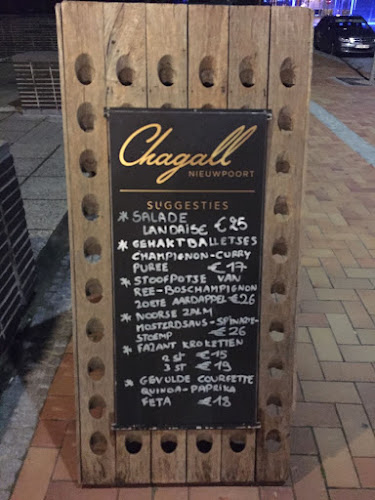 Chagall
NIEUWPOORT
SUGGESTIES
* SALADE
LANDAISE €25
* GEHAKTBALLETSES
CHAMPIGNON-CURRY
PUREE €17
* STOOFPOTSE VAN
REE-BOSCHAMPIGNON
ZOETE AARDAPPEL €26
* NOORSE ZALM
MOSTERDSAUS-SPINAZIE-
STOEMP €26
* FAZANT KROKETTEN
2 st €15
3 st €19
* GEVULDE COURGETTE
QUINOA-PAPRIKA
FETA €18